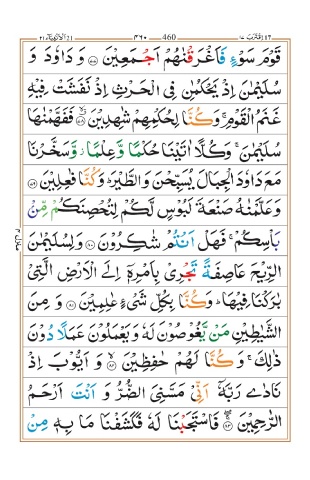 اقترب ١٧ ٤٦٠ 460 الانبياء ٢١
قَوْمَ سَوْءٍ فَاَغْرَقْنٰهُمْ اَجْمَعِيْنَ ﴿٧٧﴾ وَ دَاوٗدَ وَ
سُلَيْمٰنَ اِذْ يَحْكُمٰنِ فِي الْحَرْثِ اِذْ نَفَشَتْ فِيْهِ
غَنَمُ الْقَوْمِ ۚ وَ كُنَّا لِحُكْمِهِمْ شٰهِدِيْنَ ﴿٧٨﴾ فَفَهَّمْنٰهَا
سُلَيْمٰنَ ۚ وَ كُلًّا اٰتَيْنَا حُكْمًا وَّ عِلْمًا ؗ وَّ سَخَّرْنَا
مَعَ دَاوٗدَ الْجِبَالَ يُسَبِّحْنَ وَ الطَّيْرَ ؕ وَ كُنَّا فٰعِلِيْنَ ﴿٧٩﴾
وَ عَلَّمْنٰهُ صَنْعَةَ لَبُوْسٍ لَّكُمْ لِتُحْصِنَكُمْ مِّنْۢ
بَاْسِكُمْ ۚ فَهَلْ اَنْتُمْ شٰكِرُوْنَ ﴿٨٠﴾ وَ لِسُلَيْمٰنَ
الرِّيْحَ عَاصِفَةً تَجْرِيْ بِاَمْرِهٖۤ اِلَى الْاَرْضِ الَّتِيْ
بٰرَكْنَا فِيْهَا ؕ وَ كُنَّا بِكُلِّ شَيْءٍ عٰلِمِيْنَ ﴿٨١﴾ وَ مِنَ
الشَّيٰطِيْنِ مَنْ يَّغُوْصُوْنَ لَهٗ وَ يَعْمَلُوْنَ عَمَلًا دُوْنَ
ذٰلِكَ ۚ وَ كُنَّا لَهُمْ حٰفِظِيْنَ ﴿٨٢﴾ وَ اَيُّوْبَ اِذْ
نَادٰى رَبَّهٗۤ اَنِّيْ مَسَّنِيَ الضُّرُّ وَ اَنْتَ اَرْحَمُ
الرّٰحِمِيْنَ ﴿٨٣﴾ فَاسْتَجَبْنَا لَهٗ فَكَشَفْنَا مَا بِهٖ مِنْ